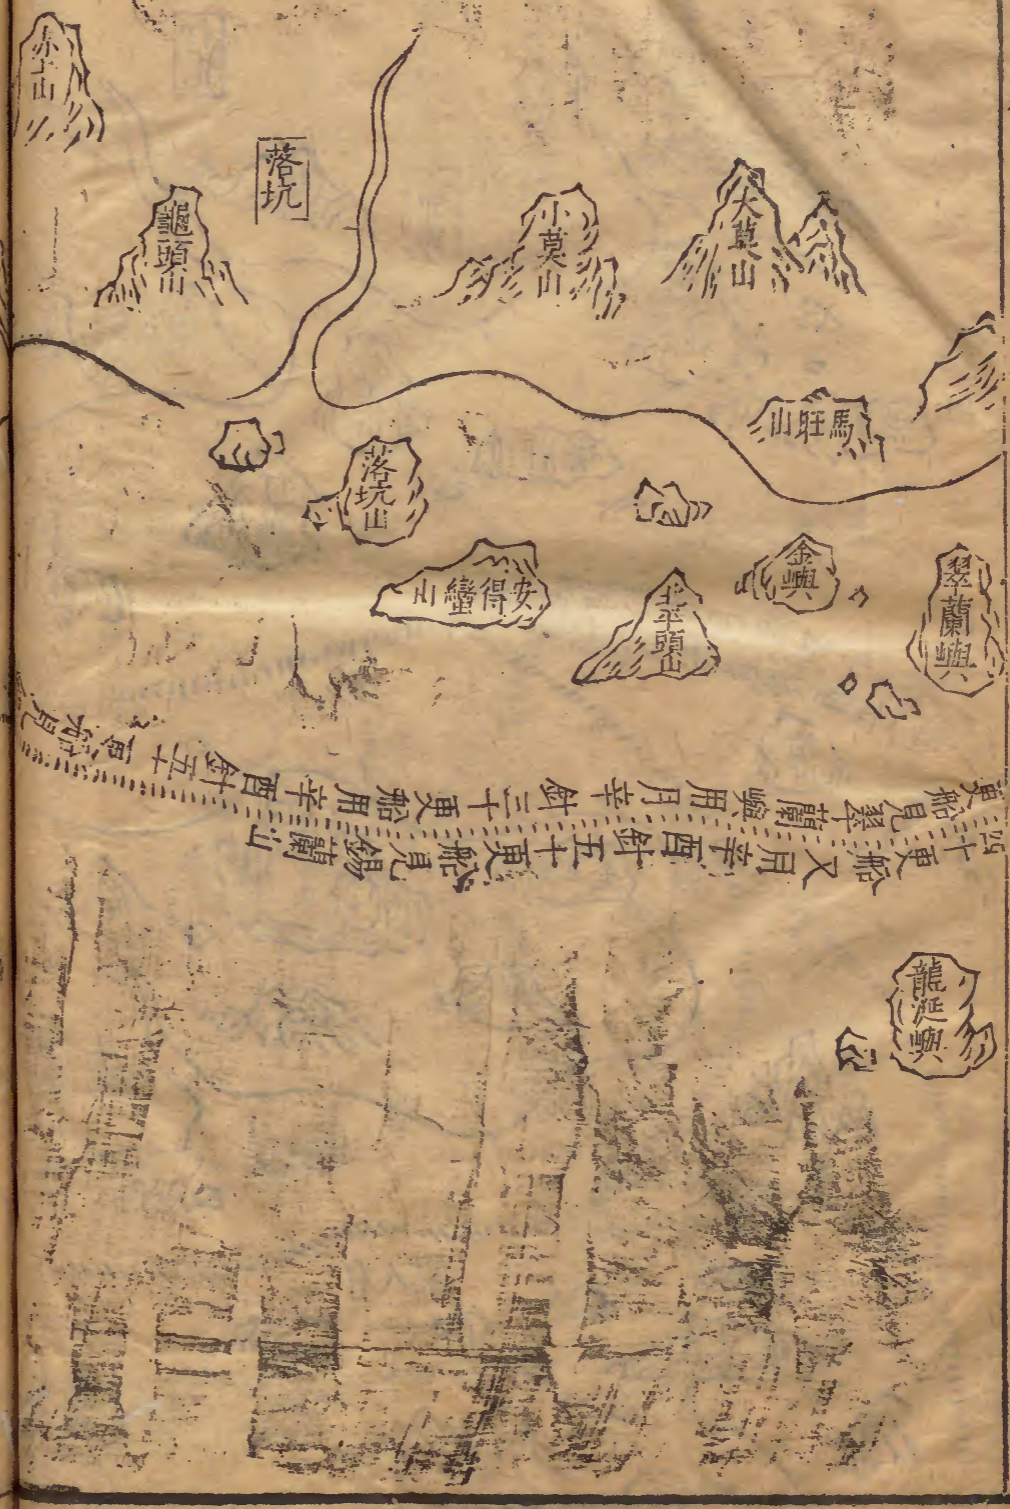 赤山
落坑
龜頭山
小莫山
大莫山
馬旺山
落坑山
安得蠻山
金嶼
北平頭山
翠蘭嶼
更船見翠蘭嶼用月辛針三十更船用辛酉針五十更船見
四十更船又用辛酉針五十更船見錫蘭山
龍涎嶼